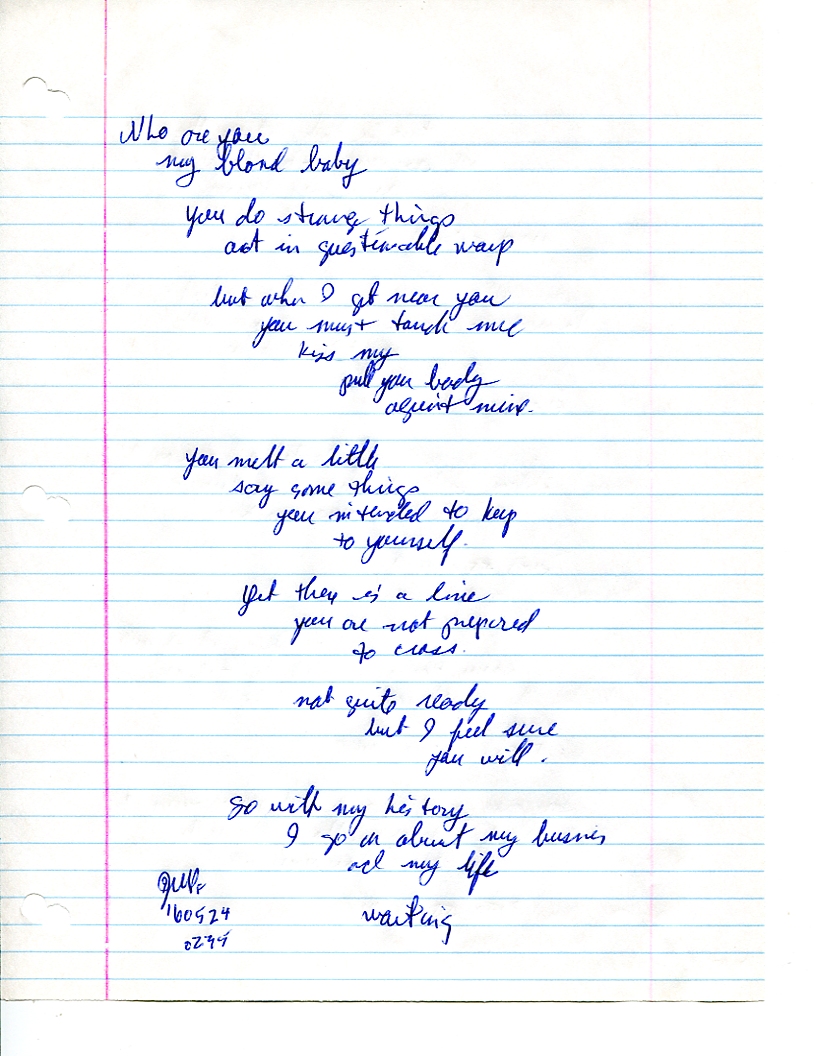 Who are you
my blond baby
you do strange things
act in questionable ways
but when I get near you
you must touch me
kiss my
pull you body
against mine.
you melt a little
say some things
you intended to keep
to yourself.
Yet there is a line
you are not prepared
to cross.
not quite ready
but I feel sure
you will.
So with my history
I go on about my business
and my life
waiting
160524